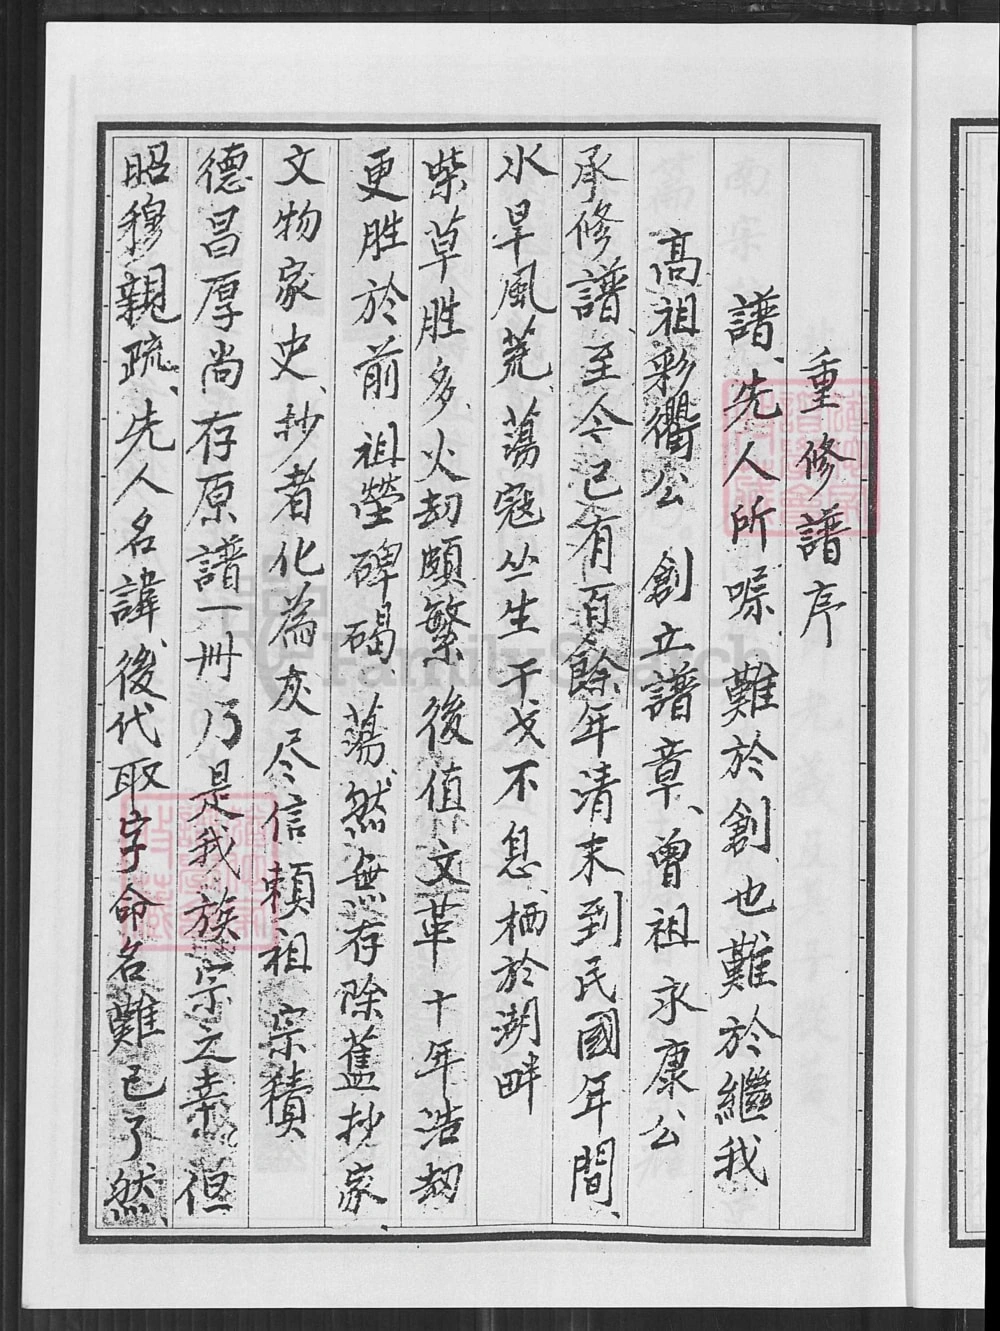 重修譜序
譜、先人所嘱難於創也難於繼我
高祖彩衢公 創立譜章、曾祖永康公
承修譜、至今已有百餘年清末到民國年間、
水旱風荒、蕩寇丛生干戈不息、栖於湖畔
柴草胜多火劫頗繁後值文革十年浩劫
更胜於前祖塋碑碣、蕩然無存除舊抄家
文物家史、抄者化為灰尽信賴祖宗積
德昌厚尚存原譜一冊乃是我族宗之幸但
昭穆親疏、先人名諱、後代取字命名難已了然、
FamilySearch